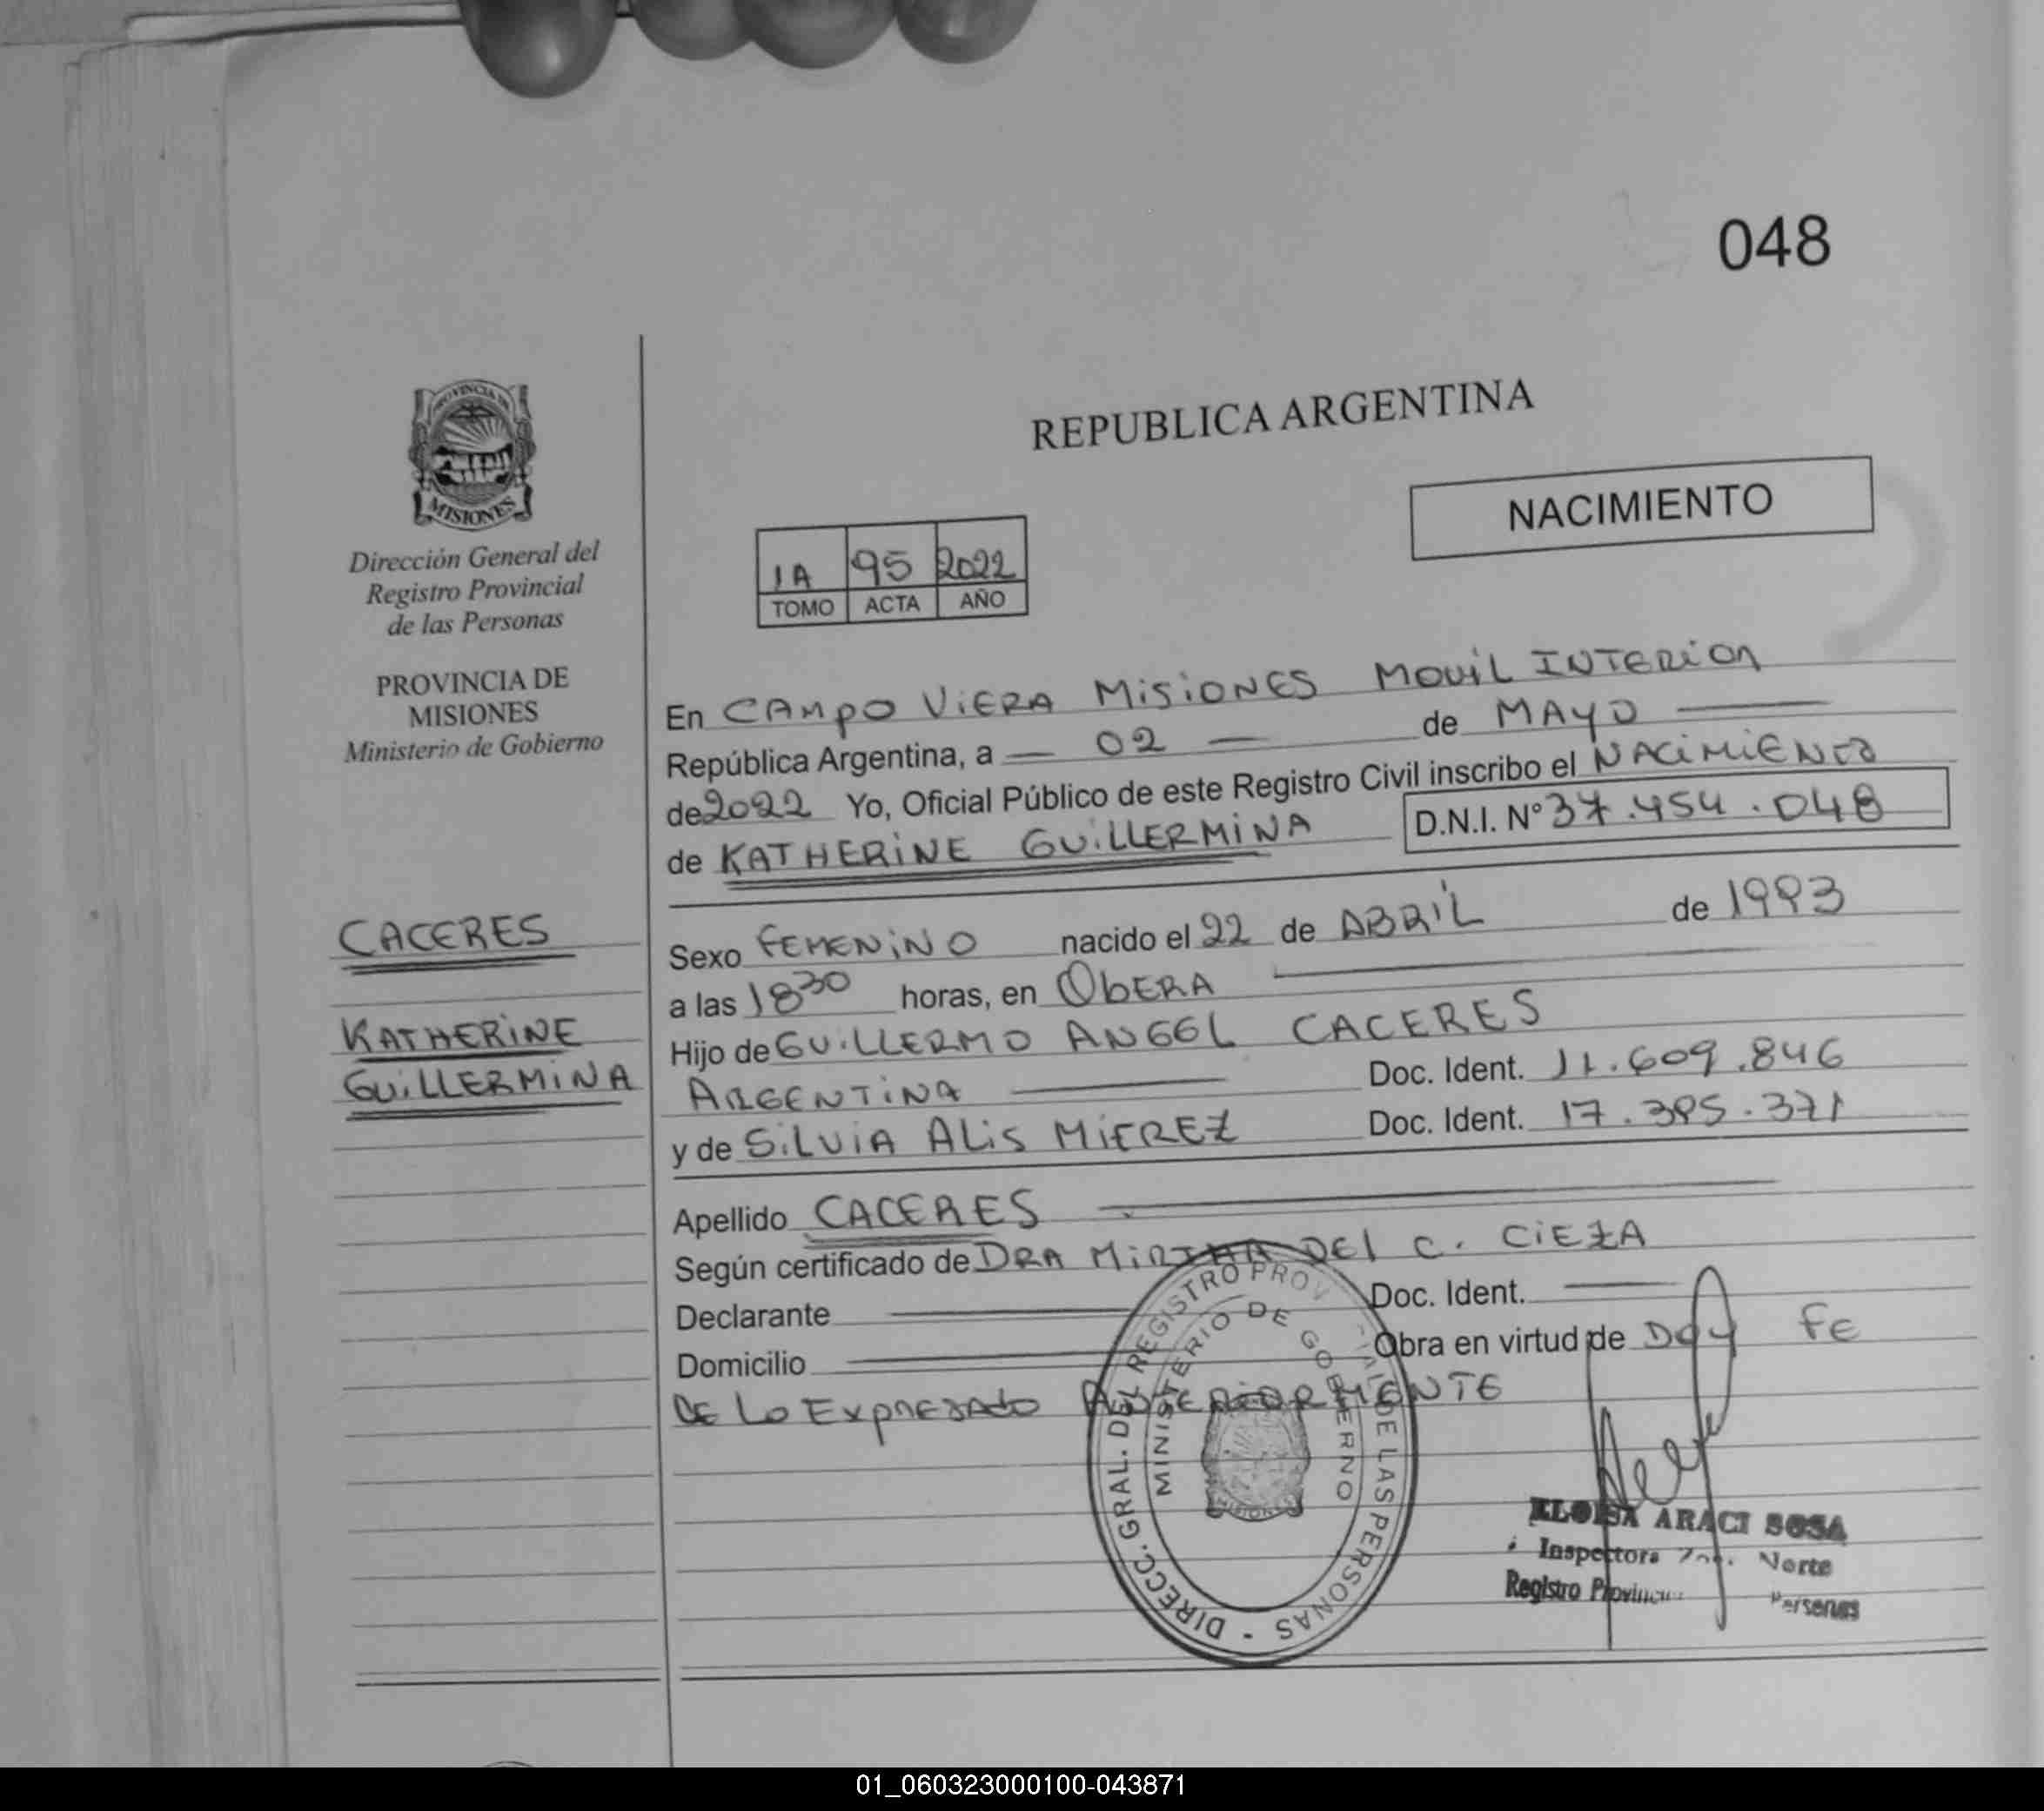 048
PROVINCIA DE
MISIONES
Dirección General del
Registro Provincial
de las Personas
PROVINCIA DE
MISIONES
Ministerio de Gobierno
CACERES
KATHERINE
GUILLERMINA
REPUBLICA ARGENTINA
NACIMIENTO
1A 95 2022
TOMO ACTA AÑO
En CAMPO VIERA MISIONES MOVIL INTERIOR
República Argentina, a — 02 — de MAYO —
de 2022 Yo, Oficial Público de este Registro Civil inscribo el NACIMIENTO
de KATHERINE GUILLERMINA D.N.I. N° 37.454.048
Sexo FEMENINO nacido el 22 de ABRIL de 1993
a las 18 30 horas, en OBERA
Hijo de GUILLERMO ANGEL CACERES
ARGENTINA — Doc. Ident. 11.609.846
y de SILVIA ALIS MIEREZ Doc. Ident. 17.395.371
Apellido CACERES
Según certificado de DRA MIRTHA DEL C. CIEZA
Declarante Doc. Ident.
Domicilio Obra en virtud de DOY FE
DE LO EXPRESADO ANTERIORMENTE
DIRECC. GRAL. DEL REGISTRO PROV DE LAS PERSONAS -
MINISTERIO DE GOBIERNO
MISIONES
ELOISA ARACI SOSA
Inspectora Norte
Registro Personas
01_060323000100-043871